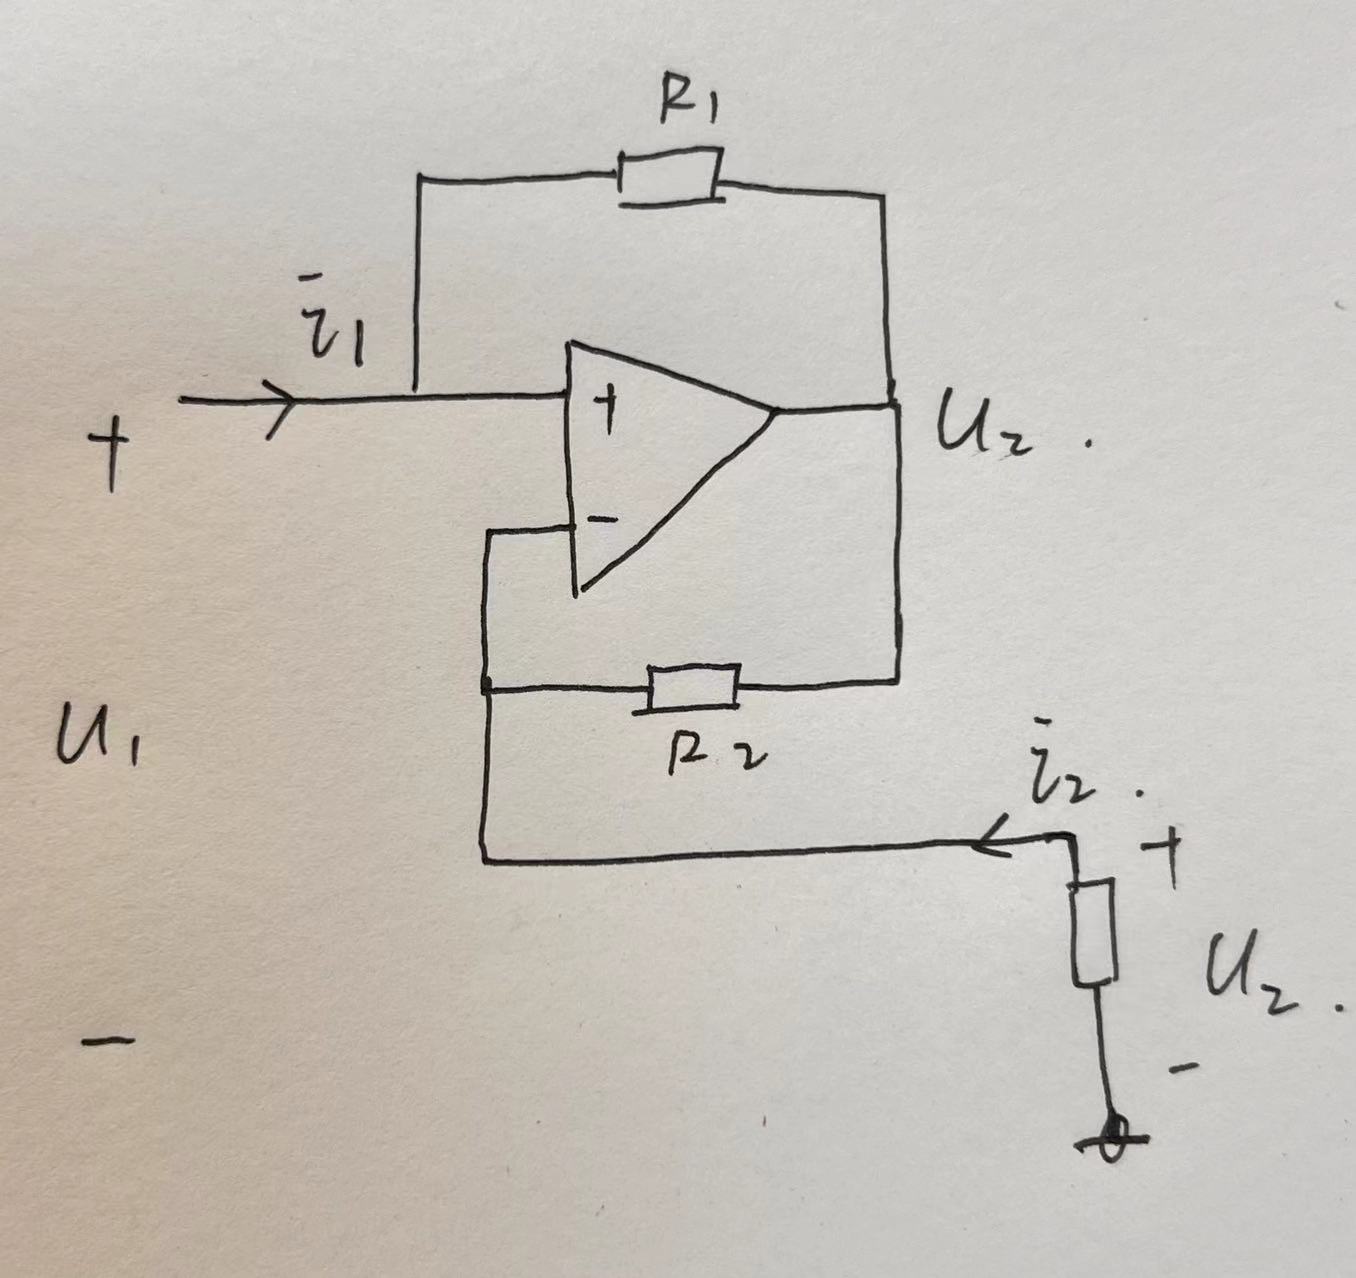 R1
i1
+
+
U2.
-
U1
R2
i2.
+
U2.
-
-